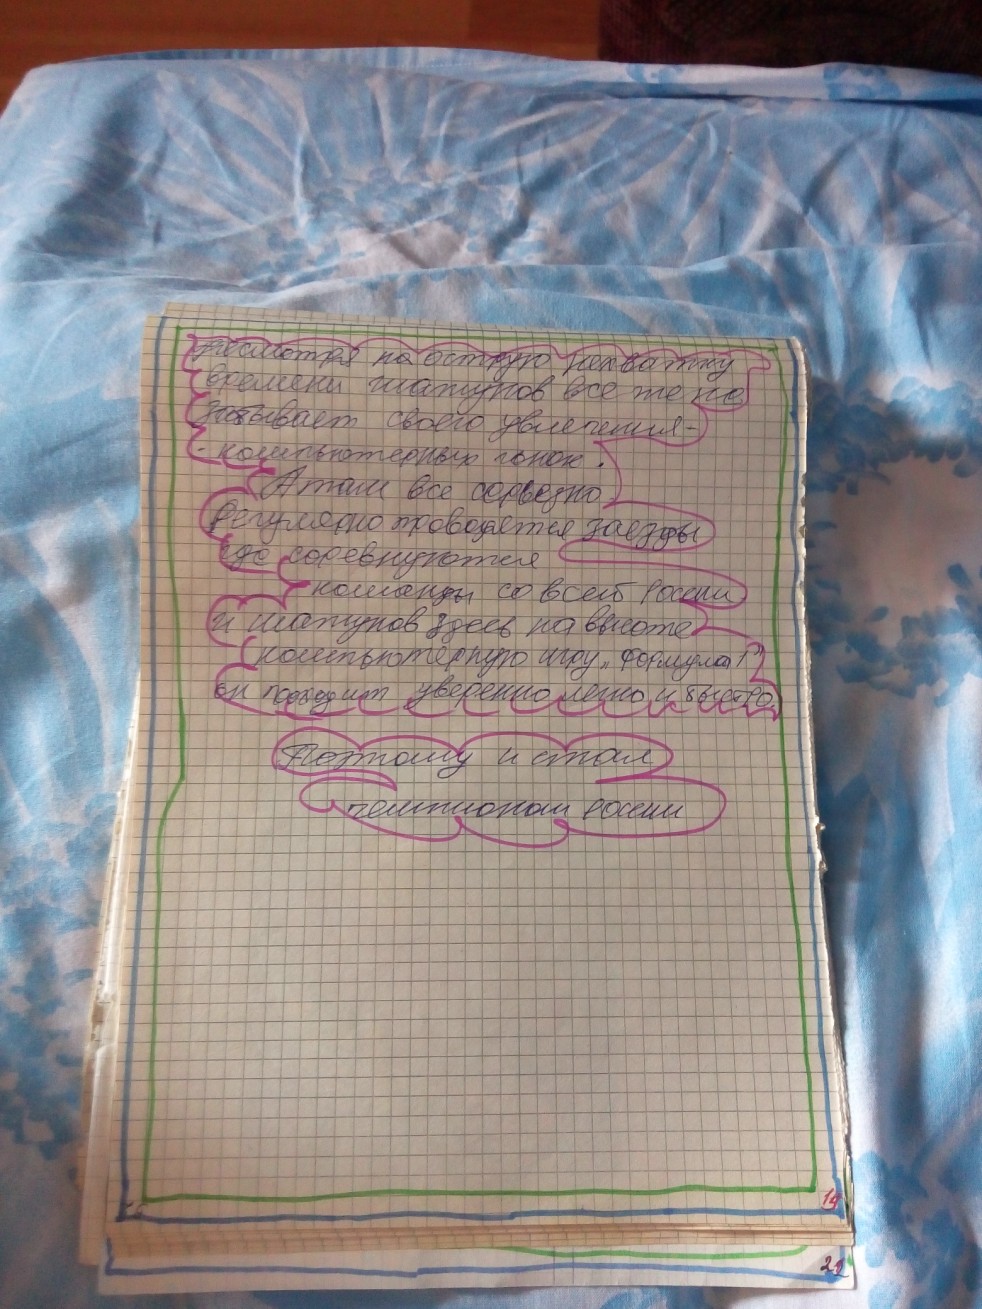 несмотря на острую нехватку
времени шапунов все же не
забывает своего увлечения-
-компьютерных гонок.
А там все серьезно
Регулярно проводятся заезды
где соревнуются
команды со всей России
и шапунов здесь на высоте
компьютерную игру „формула 1"
он проходит уверенно легко и быстро
Поэтому и стал
чемпионом России
19
22